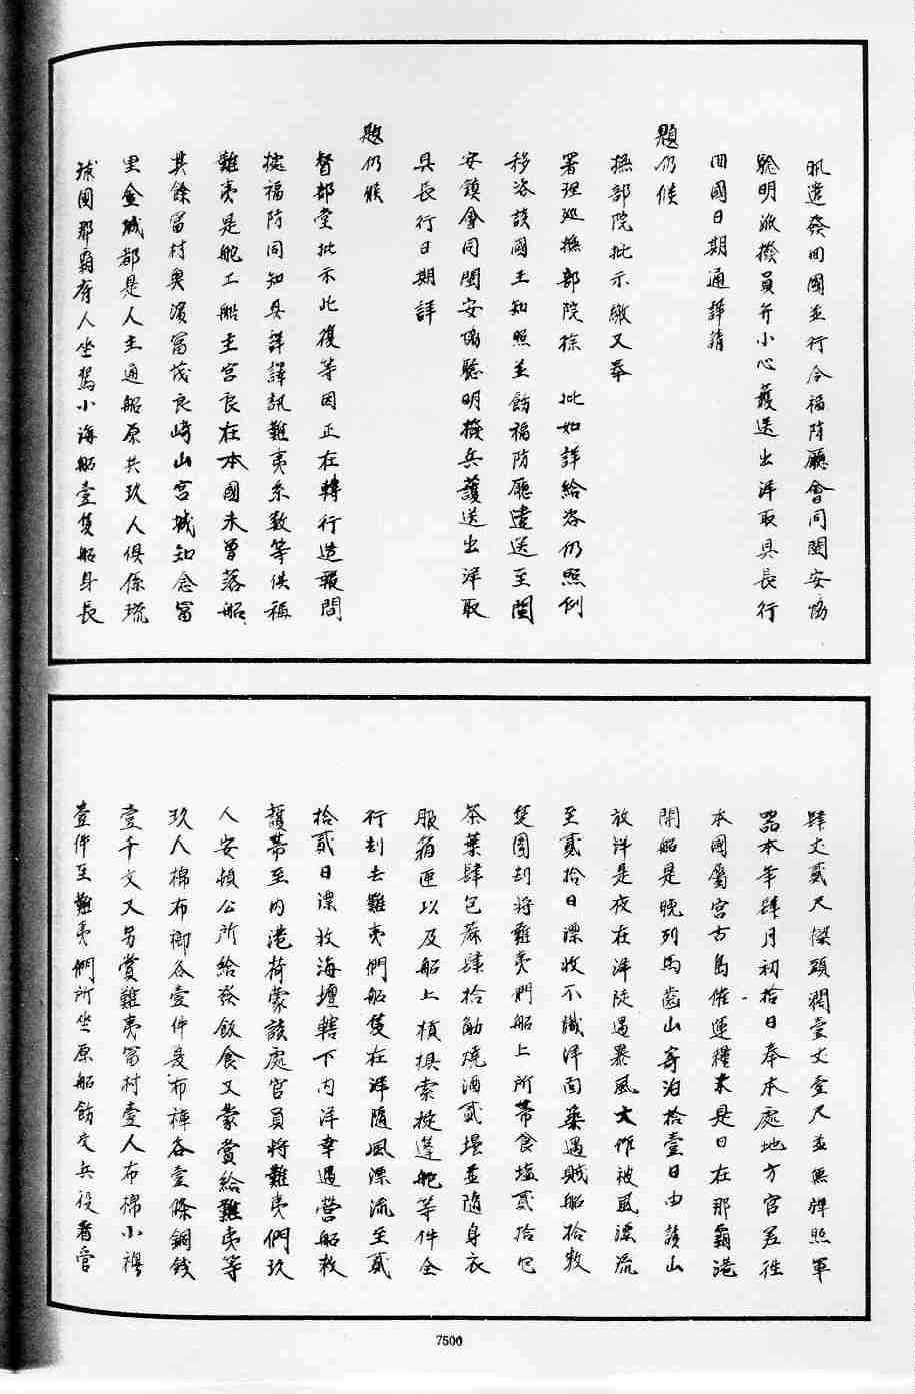 帆遣發回國並行令福防廳會同閩安協
聽明派撥員弁小心護送出洋取具長行
回國日期通詳請
題仍候
撫部院批示繳又奉
署理巡撫部院徐 批如詳給咨仍照例
移咨該國王知照並飭福防廳遣送至閩
安鎮會同閩安協聽明撥兵護送出洋取
具長行日期詳
題仍候
督部堂批示此復等因正在轉行造報間
據福防同知具詳譯訊難夷系數等供稱
難夷是舵工船主宮良在本國未曾落船
其餘富村奧濱富茂良崎山宮城知念富
里金城都是人主通船原共玖人俱係琉
球國那霸府人坐駕小海船壹隻船身長
肆丈貳尺傑頭濶壹丈壹尺並無牌照軍
器本年肆月初拾日奉本處地方官差往
本國屬宮古島催運糧米是日在那霸港
開船是晚列馬齒山寄泊拾壹日由該山
放洋是夜在洋陡遇暴風大作被風漂流
至貳拾日漂收不識洋面藥遇賊船拾數
隻圍刦將難夷們船上所帶食塩貳拾包
茶葉肆包蔴肆拾觔燒酒貳壜並隨身衣
服箱匣以及船上槓椇索掟蓬舵等件全
行刦去難夷們船隻在洋隨風漂流至貳
拾貳日漂收海壇轄下內洋幸遇營船救
護帶至內港荷蒙該處官員將難夷們玖
人安頓公所給發飯食又蒙賞給難夷等
玖人棉布衫各壹件夏布褲各壹條銅錢
壹千文又另賞難夷富村壹人布棉小襖
壹件至難夷們所坐原船飭交兵役看管
7500